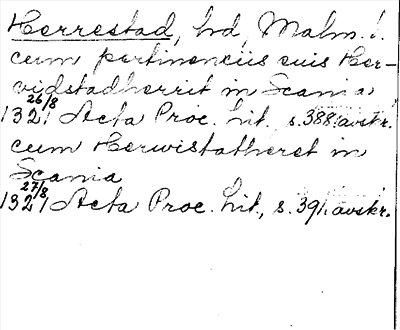 Herrestad, hd, Malm. l.
cum pertinenciis suis Her-
vidstadherrit in Scania
26/8
1321 Acta Proc. lit. s. 388. avskr.
cum Herwistatheret in
Scania
27/8
1321 Acta Proc. lit., s. 391. avskr.